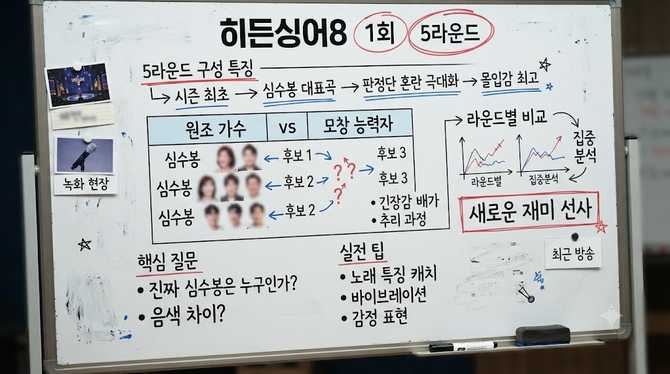 히든싱어8 1회 5라운드
5라운드 구성 특징
시즌 최초 → 심수봉 대표곡 → 판정단 혼란 극대화 → 몰입감 최고
원조 가수 vs 모창 능력자
심수봉 후보 1 후보 3
심수봉 후보 2 ? ? 후보 3
심수봉 후보 2 ?
• 긴장감 배가
• 추리 과정
라운드별 비교
집중
분석
라운드별 집중분석
새로운 재미 선사
녹화 현장
최근 방송
핵심 질문
• 진짜 심수봉은 누구인가?
• 음색 차이?
실전 팁
• 노래 특징 캐치
• 바이브레이션
• 감정 표현